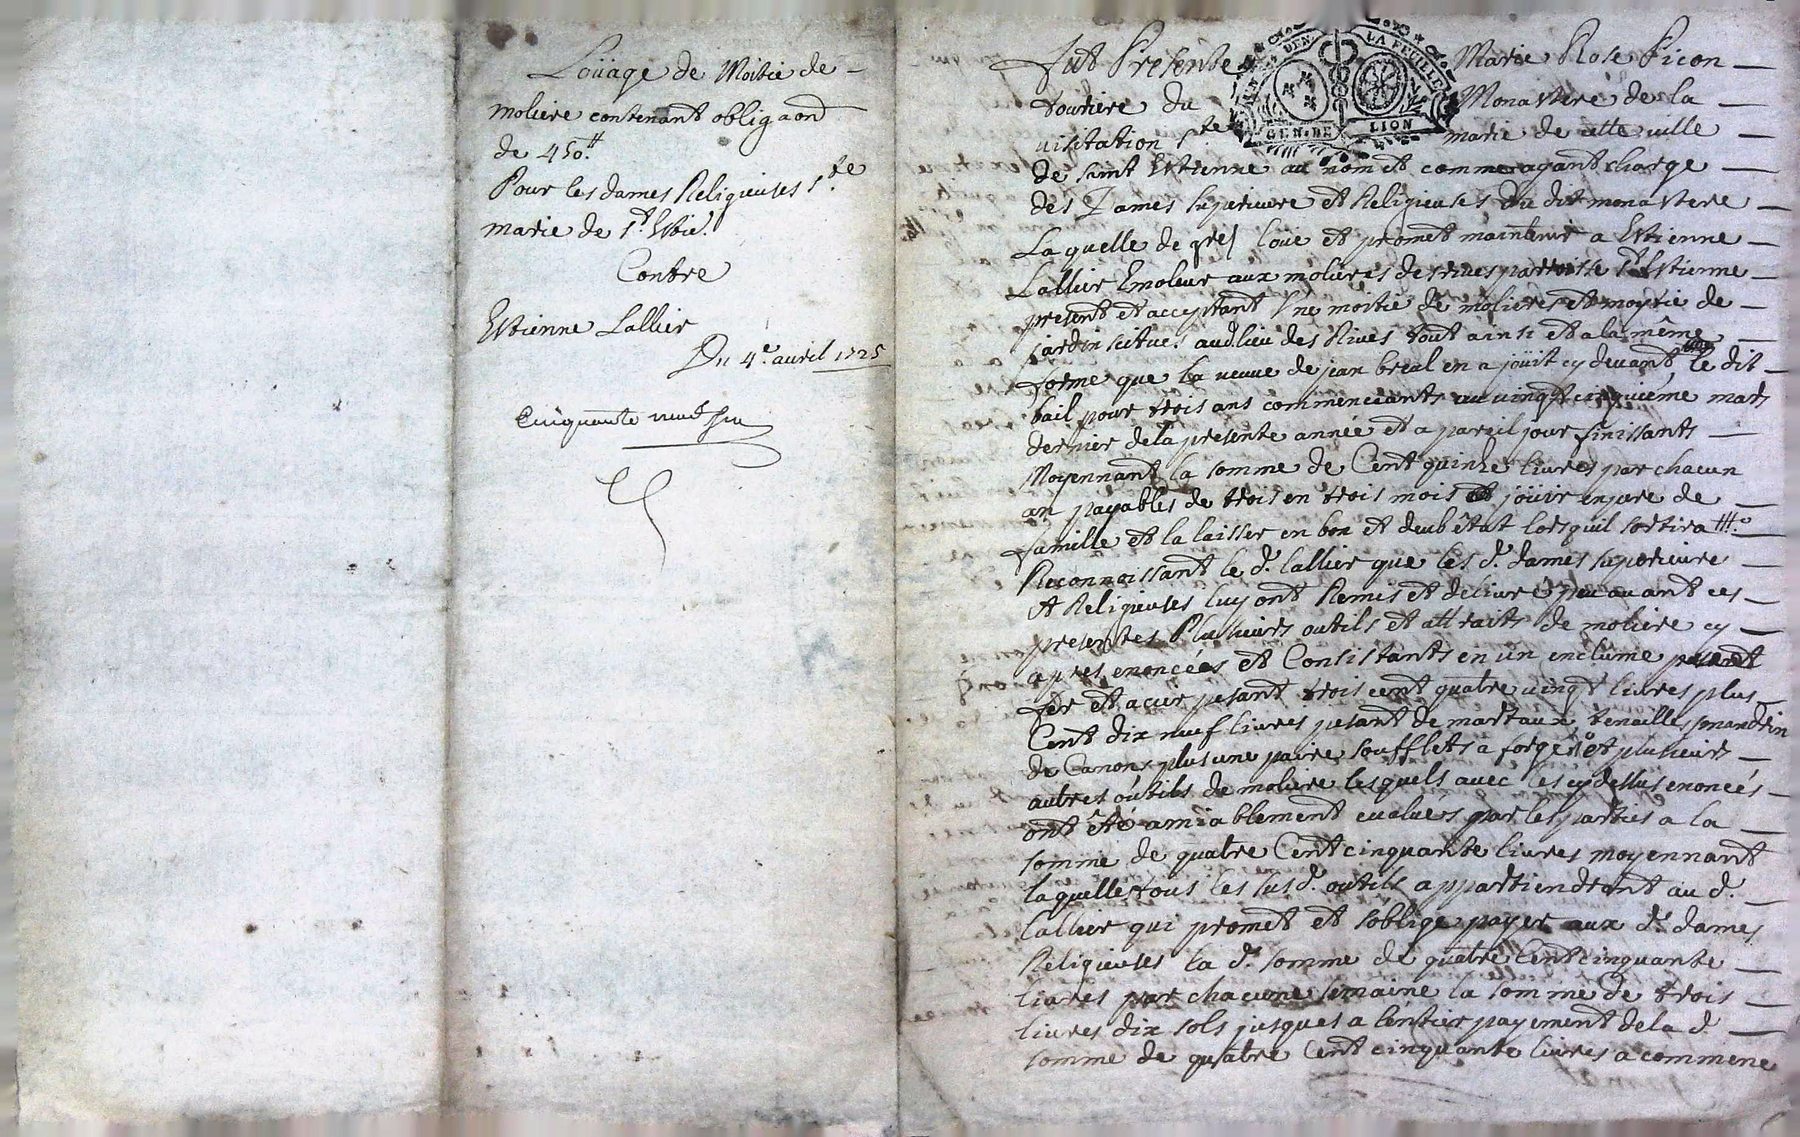 Loüage de Moitie de
moliere contenant obligaon
de 450.ₗₜ
Pour les dames Religieuses s.te
marie de s.t Estie.
Contre
Estienne Lallier
Du 4.e avril 1725
Cinquante neuf
GEN. DE LION
LA FEUILLE
Fut Presente Marie Rose Picon
touriere du Monastere de la
visitation s.te marie de cette ville
de saint Estienne au nom et comme ayant charge
des Dames superieure et Religieuses du dit monastere
Laquelle de gré loüe et promet maintenir a Estienne
Lallier Emoleur aux molieres de rives parroisse s.t Estienne
present et acceptant Une moitié de molieres et moytié de
jardin scitues audlieu des Rives tout ainsi et a la même
forme que la veuve de jean breal en a joüit cy devant le dit
bail pour trois ans commenceants au vingt cinquiéme mars
dernier de la presente année et a pareil jour finissants
Moyennant la somme de Cent quinze livres par chacun
an payables de trois en trois mois et joüir en pere de
famille et la laisser en bon et deub êtat lorsquil sortira
Reconnoissant le d. lallier que les d. dames superieure
et Religieuses luy ont Remis et delivré peu avant ces
presentes Plusieurs outils et attraits de moliere cy
apres enoncées et Consistants en un enclume pesant
fer et acier pesant trois cent quatre vingt livres plus
Cent dix neuf livres pesant de marteaux tenailles mandrin
de Canons plus une paire soufflets a forger et plusieurs
autres outils de moliere lesquels avec les cy dessus enoncés
ont êté amiablement evalues par les parties a la
somme de quatre Cent cinquante livres moyennant
laquelle tous les susd. outils appartiendront au d.
lallier qui promet et soblige payer aux d. dames
Religieuses la d. somme de quatre Cent cinquante
livres par chacune semaine la somme de trois
livres dix sols jusques a lentier payement de la d
somme de quatre Cent cinquante livres a commene